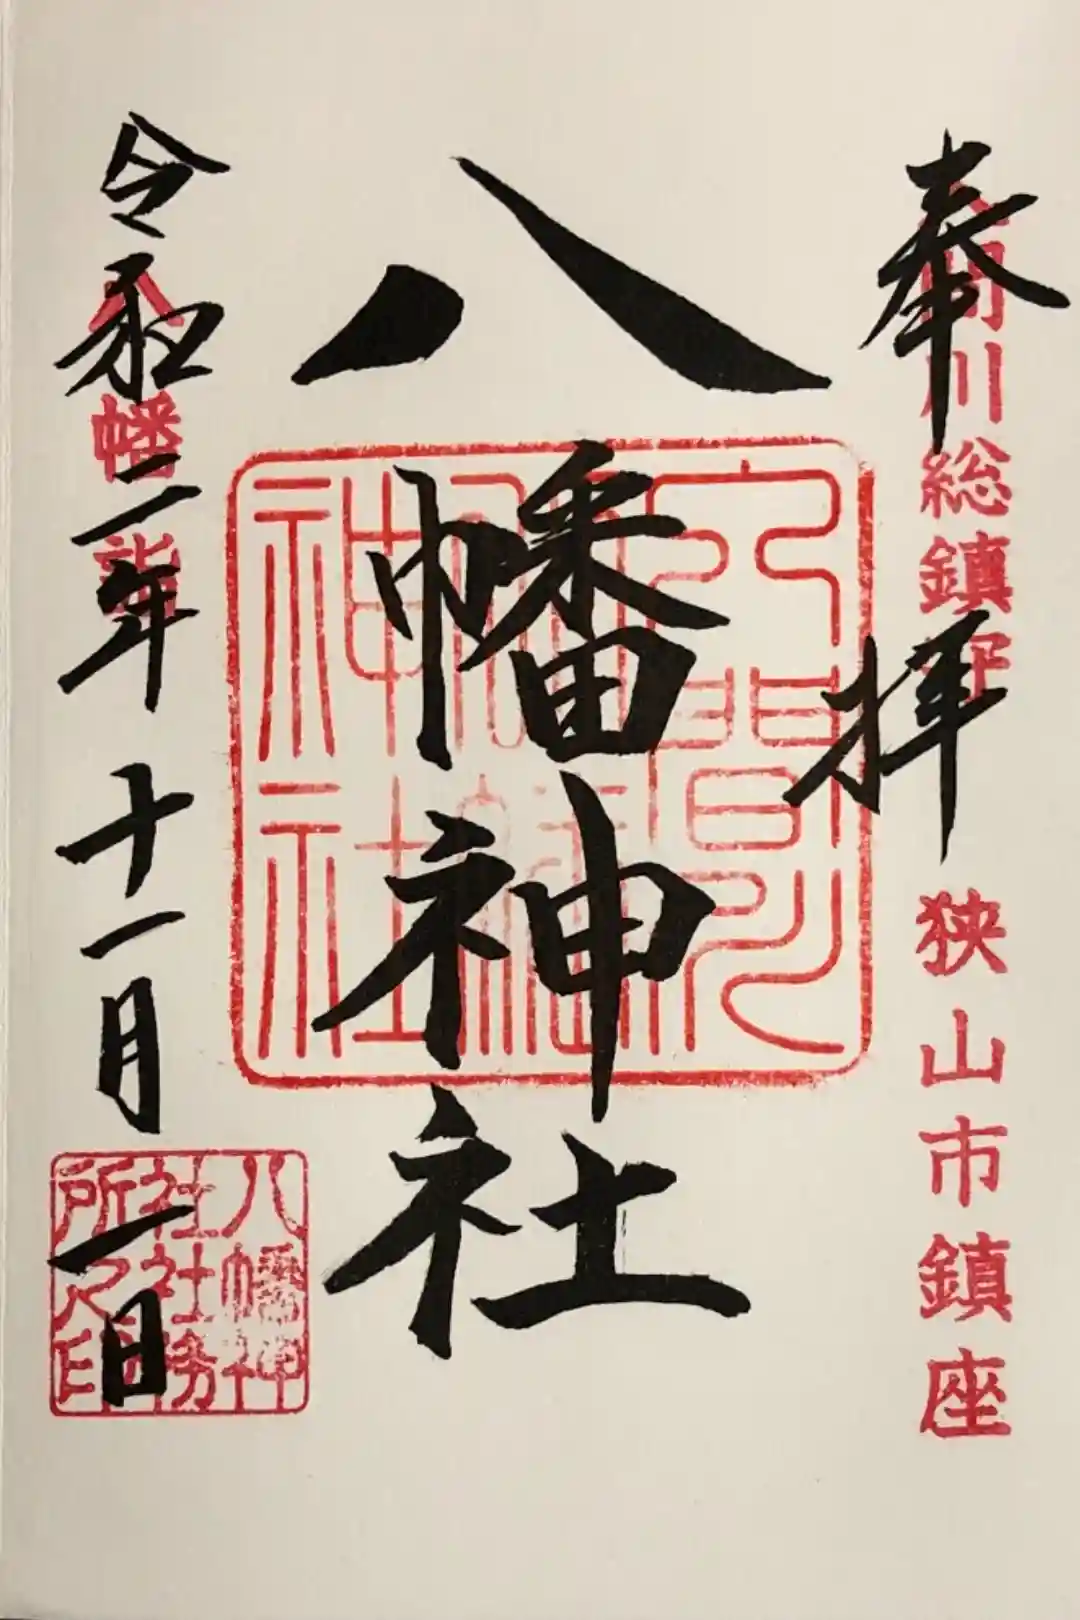 奉拝
入間川総鎮守
狭山市鎮座
八幡神社
令和二年十一月一日
八幡
八幡神
社社務
所之印